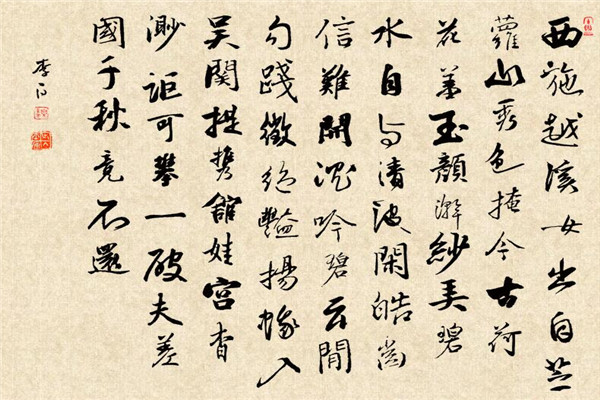 西施越溪女出自苎
蘿山秀色掩今古荷
花羞玉顏澣紗弄碧
水自与清波閑皓齒
信難開沉吟碧云間
勾踐徵絕豔揚蛾入
吳關提攜館娃宮杳
渺詎可攀一破夫差
國千秋竟不還
李白